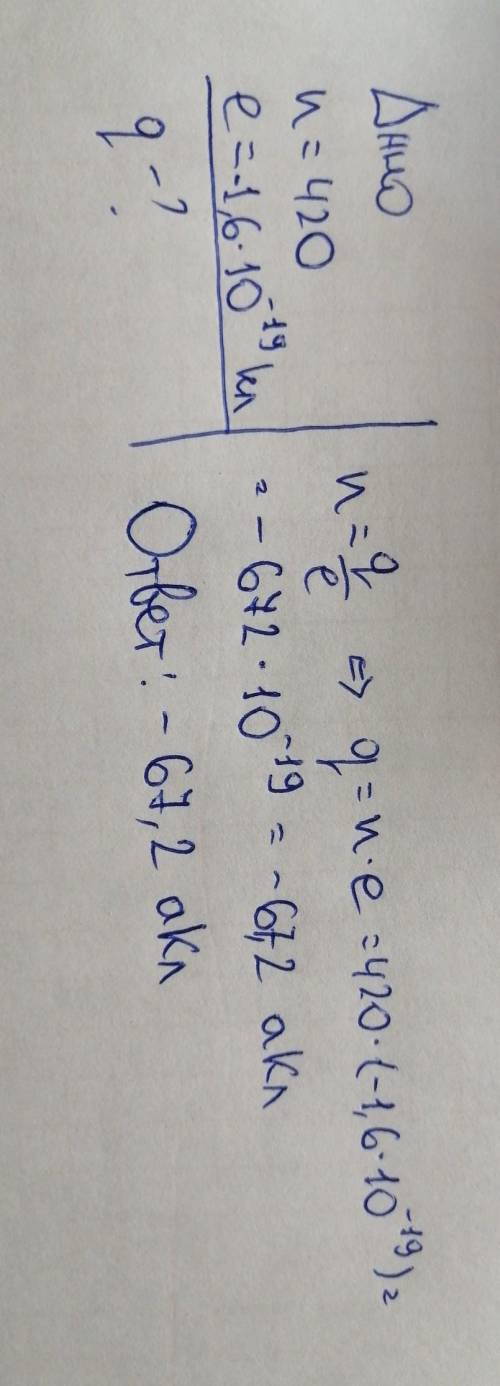 Дано
n = 420
e = -1,6·10⁻¹⁹ кл
q - ?
n = q/e ⇒ q = n·e = 420·(-1,6·10⁻¹⁹) =
= - 672·10⁻¹⁹ = -67,2 акл
Ответ: - 67,2 акл